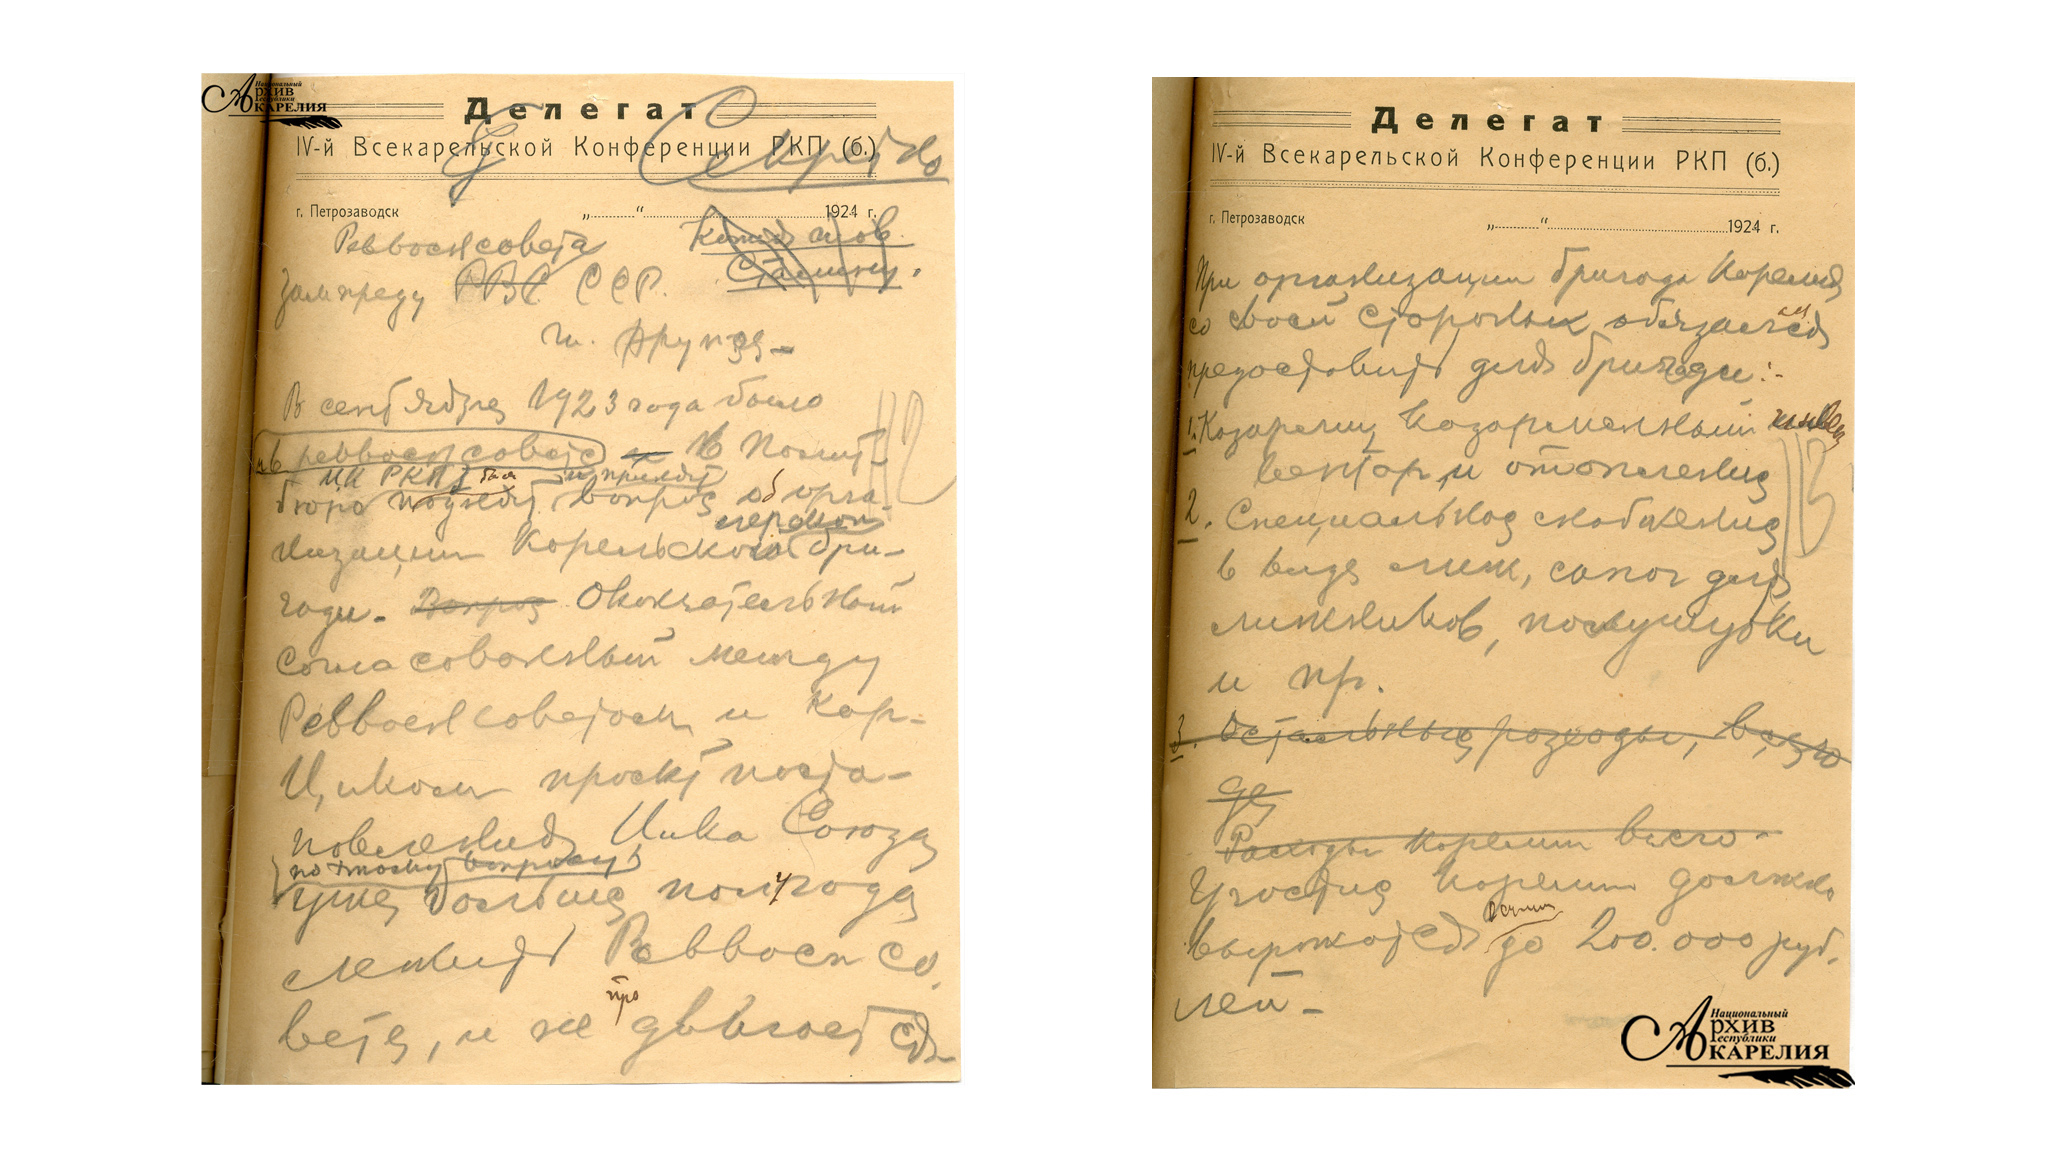 Национальный
Архив
Республики
КАРЕЛИЯ
Делегат
IV-й Всекарельской Конференции РКП (б.)
Секретно
г. Петрозаводск „ “ 1924 г.
Реввоенсовета Копия тов.
Сталину.
Зампреду РВС ССР.
т. Фрунзе-
В сентябре 1923 года было
и в реввоенсовете и в Полит-
ЦК РКП был и принят
бюро поднят вопрос об орга-
низации Карельской бри-
гады. Вопрос Окончательный
согласованный между
Реввоенсоветом и Кар-
Циком проект поста-
новления Цика Союза
по этому вопросу
уже больше полугода
лежит в Реввоенсо-
про
вете, и не двигается
Делегат
IV-й Всекарельской Конференции РКП (б.)
г. Петрозаводск „ “ 1924 г.
При организации бригады Карелия
со своей стороны обязалась
предоставить для бригады:-
1. Казармы, казарменный
вентарь и отопление
2. Специальное снабжение
в виде лыж, сапог для
лыжников,
и пр.
3. Остальные расходы,
де
Расходы Карелии всего-
Участие Карелии должно
выражаться до 200.000 руб-
лей-
Национальный
Архив
Республики
КАРЕЛИЯ